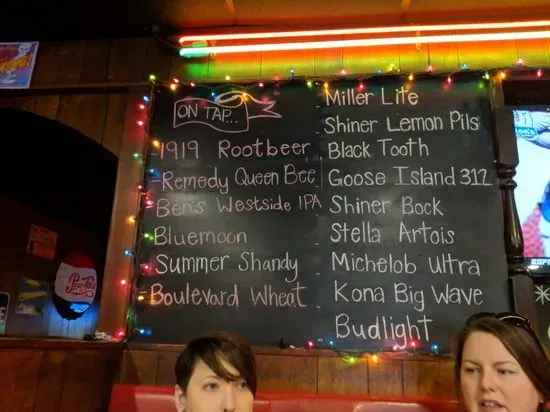 ON TAP...
-1919 Rootbeer
-Remedy Queen Bee
-Ben's Westside IPA
Bluemoon
-Summer Shandy
-Boulevard Wheat
Miller Lite
Shiner Lemon Pils
Black Tooth
Goose Island 312
Shiner Bock
Stella Artois
Michelob Ultra
Kona Big Wave
Budlight